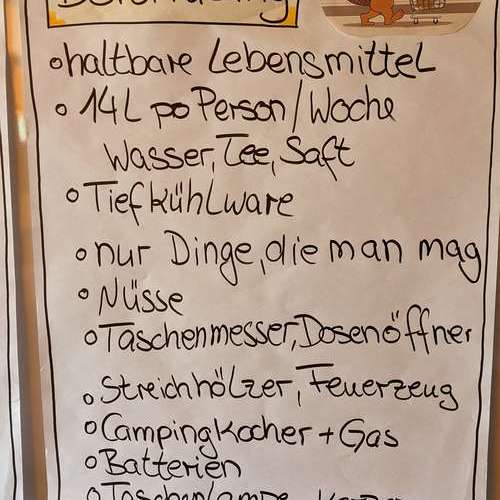 ○ haltbare Lebensmittel
○ 14L po Person/Woche
Wasser, Tee, Saft
○ Tiefkühlware
○ nur Dinge, die man mag
○ Nüsse
○ Taschenmesser, Dosenöffner
○ Streichhölzer, Feuerzeug
○ Campingkocher + Gas
○ Batterien